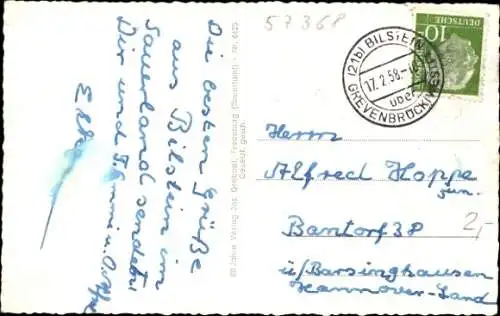 57368
Die besten Grüße
aus Bilstein im
Sauerland sendet
Dir und
(21b) BILSTEIN
17.2.58
über
GREVENBRÜCK
DEUTSCHE
10
Herrn
Alfred Hoppe
jun.
Bantorf 38
ü/Barsinghausen
Hannover-Land
2,-
60 Jahre Verlag Jos. Grobbel, Fredeburg (Sauerland) - Nr.
Gesetzl. gesch.